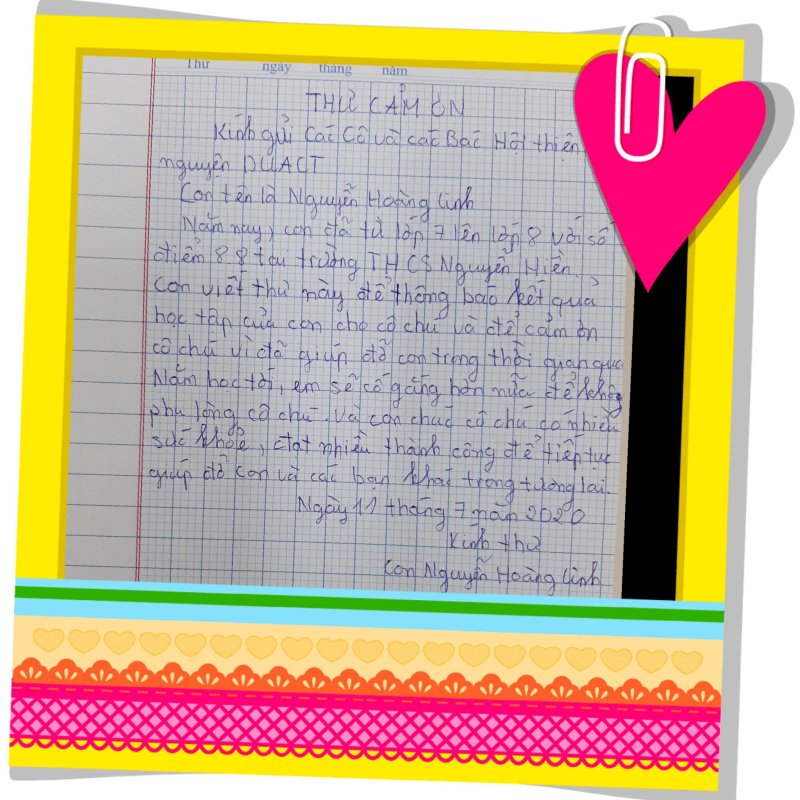 Thứ ngày tháng năm
THƯ CẢM ƠN
Kính gửi Các Cô và các Bác Hội thiện
nguyện DUACT
Con tên là Nguyễn Hoàng Linh
Năm nay, con đã từ lớp 7 lên lớp 8 với số
điểm 8.8 tại trường THCS Nguyễn Hiền.
Con viết thư này để thông báo kết quả
học tập của con cho cô chú và để cảm ơn
cô chú vì đã giúp đỡ con trong thời gian qua
Năm học tới, em sẽ cố gắng hơn nữa để không
phụ lòng cô chú. Và con chúc cô chú có nhiều
sức khỏe, đạt nhiều thành công để tiếp tục
giúp đỡ con và các bạn khác trong tương lai.
Ngày 11 tháng 7 năm 2020
Kính thư
Con Nguyễn Hoàng Linh